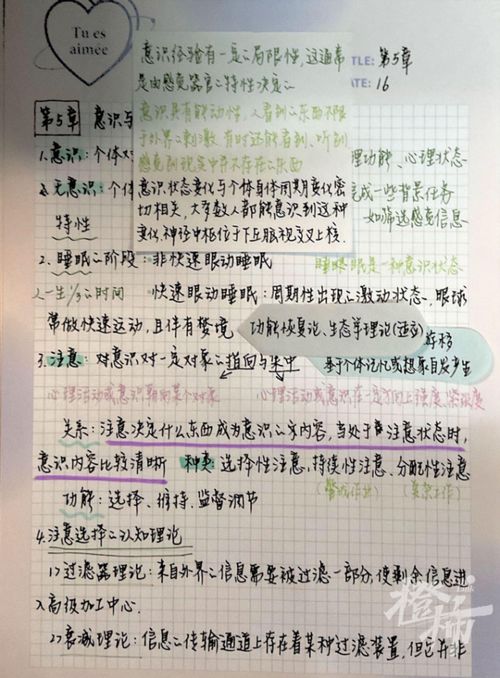 Tu es
aimée
TLE: 第5章
ATE: 16
意识经验有一定的局限性,这通常
是由感觉器官的特性决定的
意识具有能动性,人看到的东西不限
于外界的刺激,有时还能看到、听到
感觉到现实中不存在的东西
意识状态变化与个体身体周期变化密
切相关,大多数人都能意识到这种
变化,神经中枢位于下丘脑视交叉上核
第5章 意识与
1.意识:个体对 理功能、心理状态
2.无意识:个体 完成一些背景任务
特性 如筛选感觉信息
2.睡眠的阶段:非快速眼动睡眠 睡眠是一种意识状态
一生1/3的时间 快速眼动睡眠:周期性出现的激动状态,眼球
常做快速运动,且伴有梦境 功能恢复论、生态学理论(进化)
基于个体记忆或想象自发产生
3.注意:对意识对一定对象的指向与集中
心理活动或意识朝向某个对象 心理活动或意识在一定方向上强度、紧张度
关系:注意决定什么东西成为意识的内容,当处于注意状态时,
意识内容比较清晰 种类:选择性注意、持续性注意、分配性注意
功能:选择、维持、监督调节
4.注意选择的认知理论
1)过滤器理论:来自外界的信息需要被过滤一部分,使剩余信息进
入高级加工中心.
2)衰减理论:信息的传输通道上存在着某种过滤装置,但它并非
橙柿